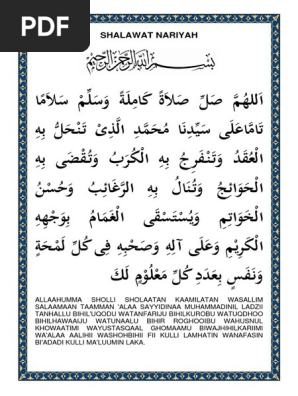 PDF
SHALAWAT NARIYAH
بسم الله الرحمن الرحيم
اَللهُمَّ صَلِّ صَلاَةً كَامِلَةً وَسَلِّمْ سَلاَمًا
تَامًّا عَلَى سَيِّدِنَا مُحَمَّدِ الَّذِىْ تَنْحَلُّ بِهِ
الْعُقَدُ وَتَنْفَرِجُ بِهِ الْكُرَبُ وَتُقْضَى بِهِ
الْحَوَائِجُ وَتُنَالُ بِهِ الرَّغَائِبُ وَحُسْنُ
الْخَوَاتِمِ وَيُسْتَسْقَى الْغَمَامُ بِوَجْهِهِ
الْكَرِيْمِ وَعَلَى آلِهِ وَصَحْبِهِ فِى كُلِّ لَمْحَةٍ
وَنَفَسٍ بِعَدَدِ كُلِّ مَعْلُوْمٍ لَكَ
ALLAAHUMMA SHOLLI SHOLAATAN KAAMILATAN WASALLIM
SALAAMAAN TAAMMAN 'ALAA SAYYIDINAA MUHAMMADINIL LADZII
TANHALLU BIHIL'UQODU WATANFARIJU BIHILKUROBU WATUQDHOO
BIHILHAWAAIJU WATUNAALU BIHIR ROGHOOIBU WAHUSNUL
KHOWAATIMI WAYUSTASQAAL GHOMAAMU BIWAJHIHILKARIIMI
WA'ALAA AALIHII WASHOHBIHII FII KULLI LAMHATIN WANAFASIN
BI'ADADI KULLI MA'LUUMIN LAKA.